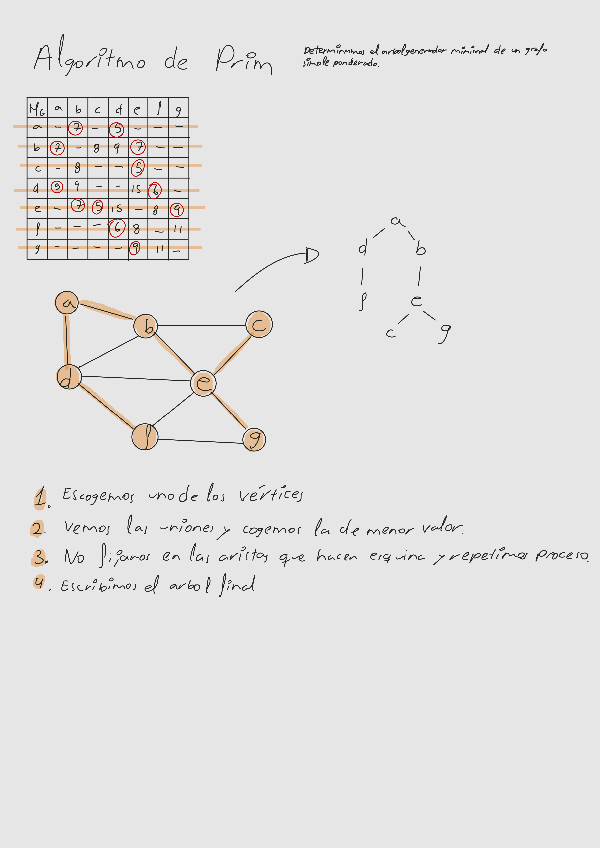 Algoritmo de Prim
Determinamos el arbol generador minimal de un grafo
simple ponderado.
MG a b c d e f g
a - 7 - 5 - - -
b 7 - 8 9 7 - -
c - 8 - - 5 - -
d 5 9 - - 15 6 -
e - 7 5 15 - 8 9
f - - - 6 8 - 11
g - - - - 9 11 -
a
d b
f e
c g
a
b c
d e
f g
1. Escogemos uno de los vértices
2. Vemos las uniones y cogemos la de menor valor.
3. No fijarnos en las aristas que hacen esquina y repetimos proceso.
4. Escribimos el arbol final